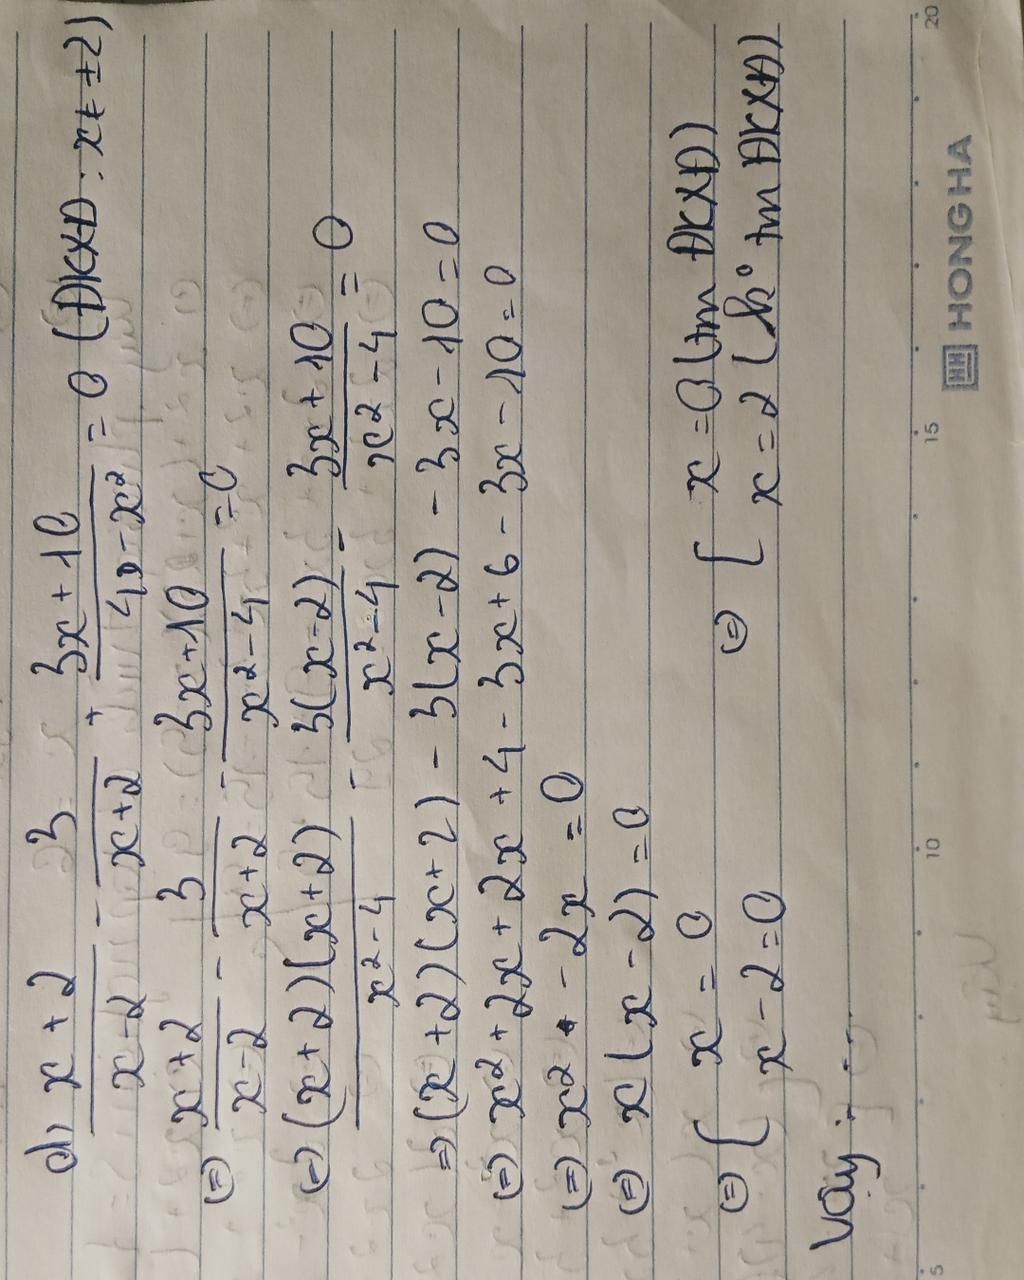 d) (x+2)/(x-2) - 3/(x+2) + (3x+10)/(4-x²) = 0 (ĐKXĐ: x≠±2)
(=) (x+2)/(x-2) - 3/(x+2) - (3x+10)/(x²-4) = 0
(=) (x+2)(x+2)/(x²-4) - 3(x-2)/(x²-4) - (3x+10)/(x²-4) = 0
=) (x+2)(x+2) - 3(x-2) - 3x-10=0
(=) x²+2x+2x+4-3x+6-3x-10=0
(=) x²-2x=0
(=) x(x-2)=0
(=) [ x=0 (=) [ x=0 (tm ĐKXĐ)
x-2=0 x=2 (kº tm ĐKXĐ)
Vậy: ...
5 10 15 20
HH HONG HA